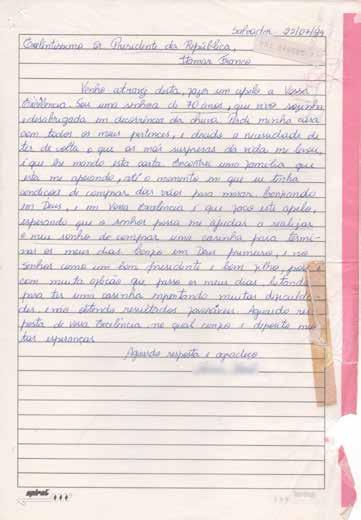 Salvador 22/04/94
Excelentíssimo Sr Presidente da República,
Itamar Franco
Venho através desta, fazer um apelo a Vossa
Excelência. Sou uma senhora de 70 anos, que vivo sozinha
e desabrigada em decorrência da chuva. Perdi minha casa
com todos os meus pertences, e devido a necessidade de
ter de volta o que as más surpresas da vida me levou,
é que lhe mando esta carta. Encontrei uma família que
esta me apoiando, até o momento em que eu tenha
condições de comprar dois vãos para morar. Confiando
em Deus, e em Vossa Excelência é que faço este apelo,
esperando que o senhor possa me ajudar a realizar
o meu sonho de comprar uma casinha para termi-
nar os meus dias. Confio em Deus primeiro, e no
Senhor como um bom presidente e bom filho, pois é
com muita aflição que passo os meus dias, lutando
para ter uma casinha enfrentando muitas dificulda-
des, e não obtendo resultados favoráveis. Aguardo res-
posta de vossa Excelência no qual confio e deposito mui-
tas esperanças.
Aguardo resposta e agradeço
spiral